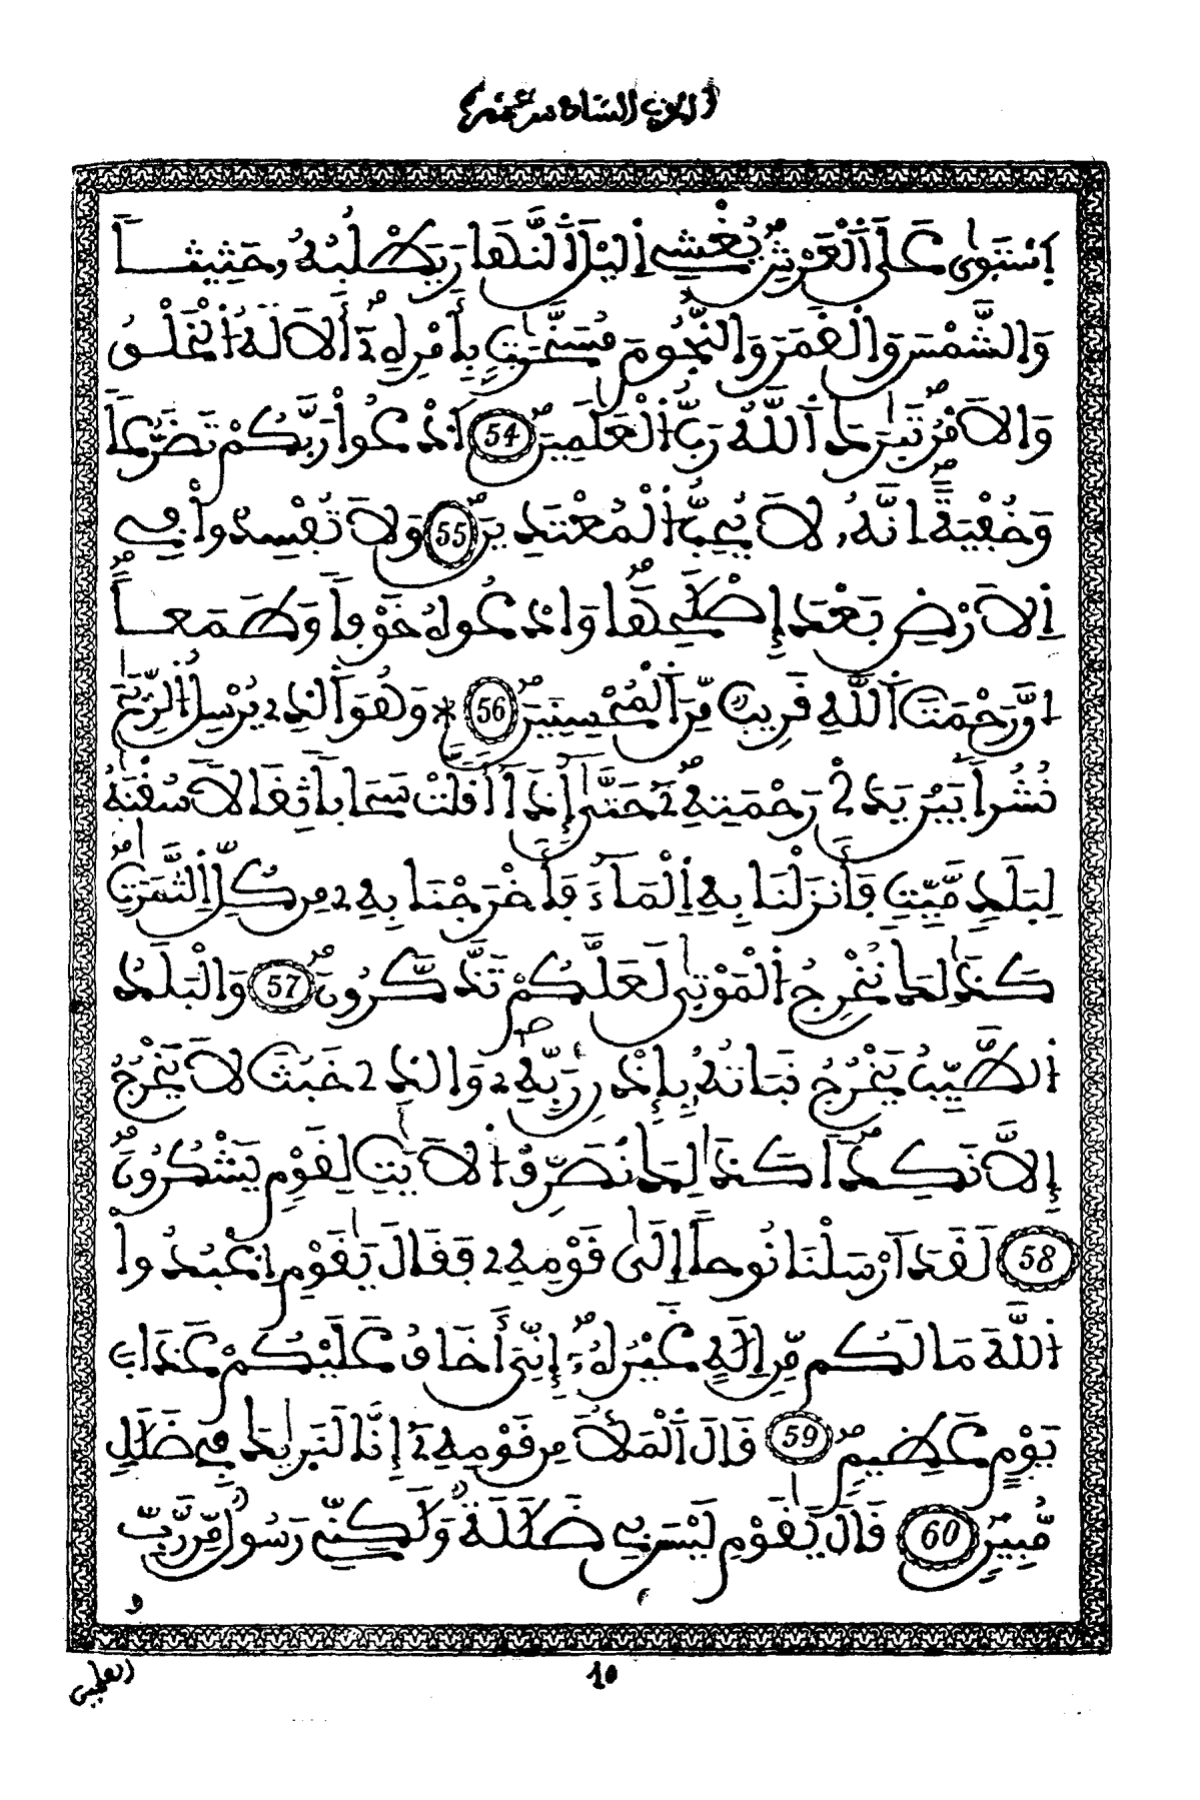 الحزب السادس عشر
اِسْتَوىٰ عَلَى اَلْعَرْشِ يُغْشِے اِليْلَ اَلنَّهَارَ يَطْلُبُهُۥ حَثِيثاً
وَالشَّمْسَ وَالْقَمَرَ وَالنُّجُومَ مُسَخَّرَٰتِۢ بِأَمْرِهِۦٓ أَلَا لَهُ اُلْخَلْقُ
وَالَامْرُ تَبَٰرَكَ اَللَّهُ رَبُّ اُلْعَٰلَمِينَ 54 اَدْعُواْ رَبَّكُمْ تَضَرُّعاً
وَخُفْيَةً اِنَّهُۥ لَا يُحِبُّ اُلْمُعْتَدِينَ 55 وَلَا تُفْسِدُواْ فِے
اِلَارْضِ بَعْدَ إِصْلَٰحِهَا وَادْعُوهُ خَوْفاً وَطَمَعاً
اِنَّ رَحْمَتَ اَللَّهِ قَرِيبٌ مِّنَ اَلْمُحْسِنِينَ 56 * وَهُوَ اَلذِے يُرْسِلُ اُلرِّيَٰحَ
نُشُراَۢ بَيْنَ يَدَےْ رَحْمَتِهِۦ حَتَّىٰٓ إِذَآ أَقَلَّتْ سَحَاباً ثِقَالاً سُقْنَٰهُ
لِبَلَدٖ مَّيِّتٖ فَأَنزَلْنَا بِهِ اِلْمَآءَ فَأَخْرَجْنَا بِهِۦ مِن كُلِّ اِلثَّمَرَٰتِ
كَذَٰلِكَ نُخْرِجُ اُلْمَوْتىٰ لَعَلَّكُمْ تَذَّكَّرُونَ 57 وَالْبَلَدُ
اُلطَّيِّبُ يَخْرُجُ نَبَاتُهُۥ بِإِذْنِ رَبِّهِۦ وَالذِے خَبُثَ لَا يَخْرُجُ
إِلَّا نَكِداً كَذَٰلِكَ نُصَرِّفُ اُلَايَٰتِ لِقَوْمٖ يَشْكُرُونَ
58 لَقَدَ اَرْسَلْنَا نُوحاً إِلَىٰ قَوْمِهِۦ فَقَالَ يَٰقَوْمِ اِعْبُدُواْ
اُللَّهَ مَا لَكُم مِّنِ اِلَٰهٍ غَيْرُهُۥٓ إِنِّيَ أَخَافُ عَلَيْكُمْ عَذَابَ
يَوْمٍ عَظِيمٖ 59 قَالَ اَلْمَلَأُ مِن قَوْمِهِۦٓ إِنَّا لَنَرَيٰكَ فِے ضَلَٰلٖ
مُّبِينٖ 60 قَالَ يَٰقَوْمِ لَيْسَ بِے ضَلَٰلَةٌ وَلَٰكِنِّے رَسُولٌ مِّن رَّبِّ
اِلعلمين
10